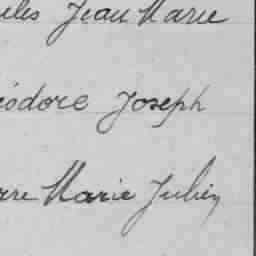 Jean Marie
éodore Joseph
rre Marie Julien